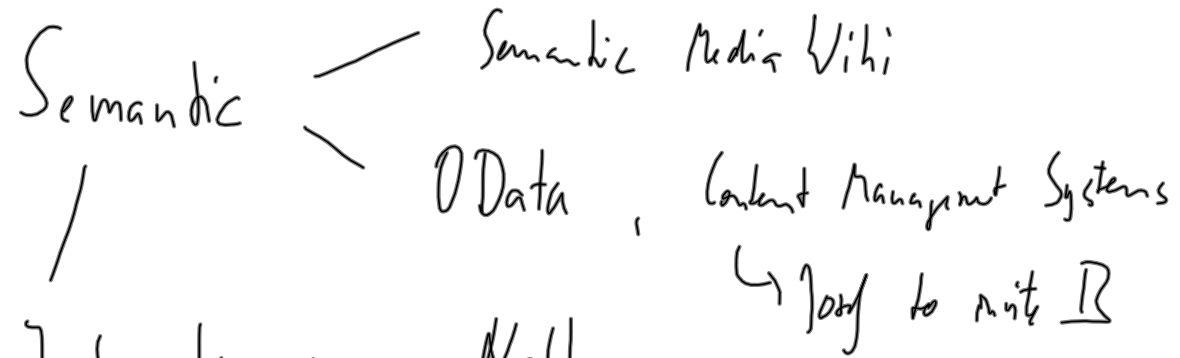 Semantic
Semantic Media Wiki
OData, Content Management Systems
to write B